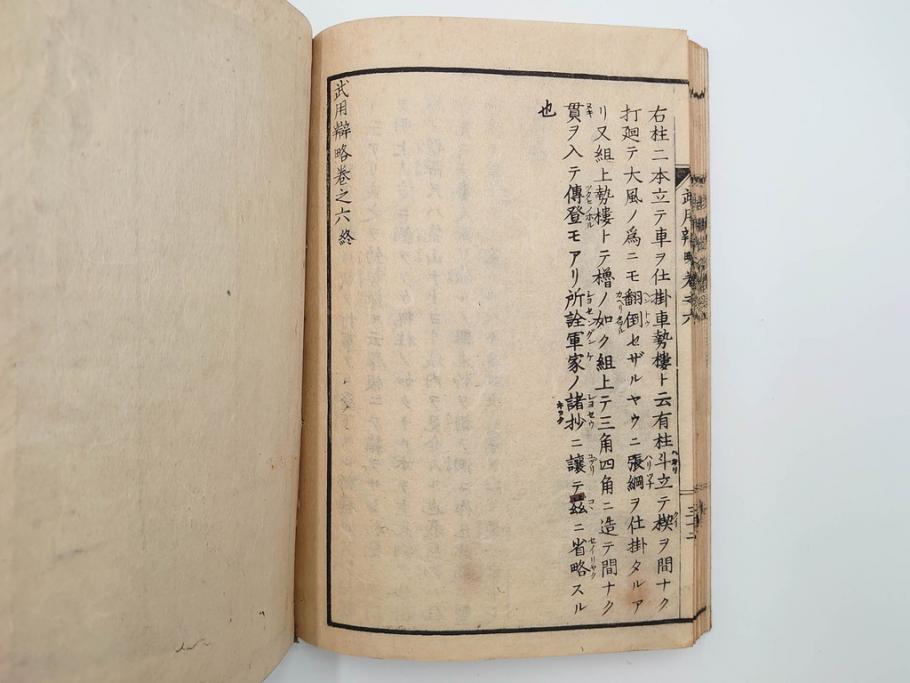 右柱二本立テ車ヲ仕掛車勢樓ト云有柱斗立テ楔ヲ間ナク
打廻テ大風ノ為ニモ翻倒セザルヤウニ張綱ヲ仕掛タルア
リ又組上勢樓トテ櫓ノ如ク組上テ三角四角ニ造テ間ナク
貫ヲ入テ傳登モアリ所詮軍家ノ諸抄ニ讓テ茲ニ省略スル
也
武用辯略卷之六終
武用辯略卷之六